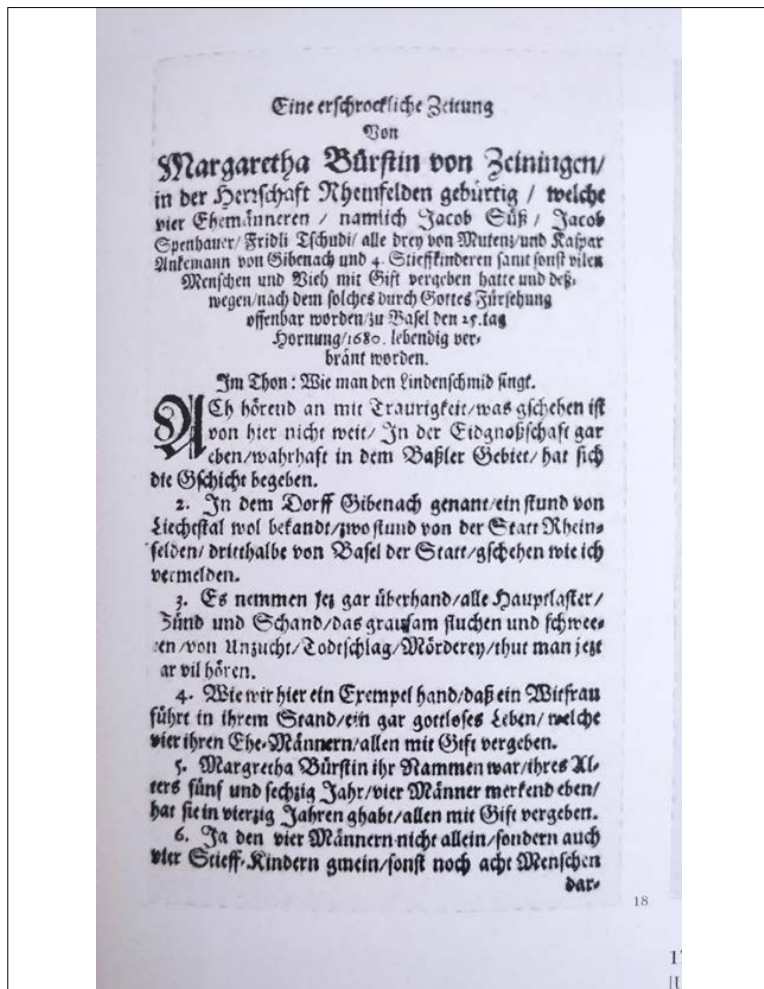 Eine erschrockliche Zeitung
Von
Margaretha Bürstin von Zeiningen/
in der Herrschaft Rheinfelden gebürtig / welche
vier Ehemänneren / namlich Jacob Süß / Jacob
Spenhauer/ Fridli Tschudi/ alle drey von Mutenz/und Kaspar
Ankemann von Gibenach und 4. Stieffkinderen samt sonst vilen
Menschen und Vieh mit Gift vergeben hatte und deß-
wegen/nach dem solches durch Gottes Fürsehung
offenbar worden/zu Basel den 25.tag
Hornung/1680. lebendig ver-
bränt worden.
Im Thon: Wie man den Lindenschmid singt.
ACh hörend an mit Traurigkeit/was gschehen ist
von hier nicht weit/ In der Eidgnoßschaft gar
eben/wahrhaft in dem Baßler Gebiet/ hat sich
die Gschicht begeben.
2. In dem Dorff Gibenach genant/ein stund von
Liechestal wol bekandt/zwo stund von der Statt Rhein-
felden/ dritthalbe von Basel der Statt/gschehen wie ich
vermelden.
3. Es nemmen jez gar überhand/alle Hauptlaster/
Sünd und Schand/das grausam fluchen und schwee-
ren/von Unzucht/Todtschlag/Mörderey/thut man jezt
ar vil hören.
4. Wie wir hier ein Exempel hand/daß ein Witfrau
führt in ihrem Stand/ein gar gottloses Leben/ welche
vier ihren Ehe-Männern/allen mit Gift vergeben.
5. Margretha Bürstin ihr Nammen war/ihres Al-
ters fünf und sechzig Jahr/vier Männer merkend eben/
hat sie in vierzig Jahren ghabt/allen mit Gift vergeben.
6. Ja den vier Männern nicht allein/sondern auch
vier Stieff-Kindern gmein/sonst noch acht Menschen
dar-
18